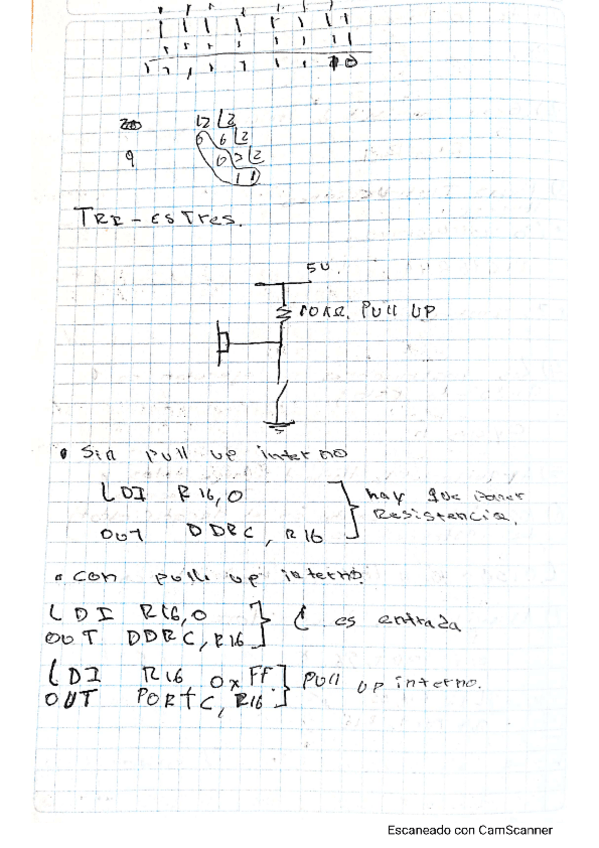 12 2
0 6 2
0 3 2
1 1
9
TRI-ESTres.
5V.
10KΩ. PULL UP
• Sin pull up interno
LDI R16,0
OUT DDRC, R16
hay que poner
Resistencia.
• con pull up interno.
LDI R16,0
OUT DDRC, R16
C es entrada
LDI R16 0xFF
OUT PORTC, R16
Pull up interno.
Escaneado con CamScanner